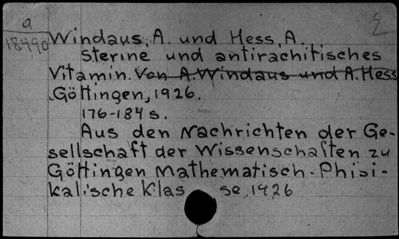 a
18490
Windaus, A. und Hess, A.
Sterine und antirachitisches
Vitamin. Von A. Windaus und A. Hess
Göttingen, 1926.
176-184 s.
Aus den Nachrichten der Ge-
sellschaft der Wissenschaften zu
Göttingen Mathematisch-Phisi-
kalische Klas se. 1926